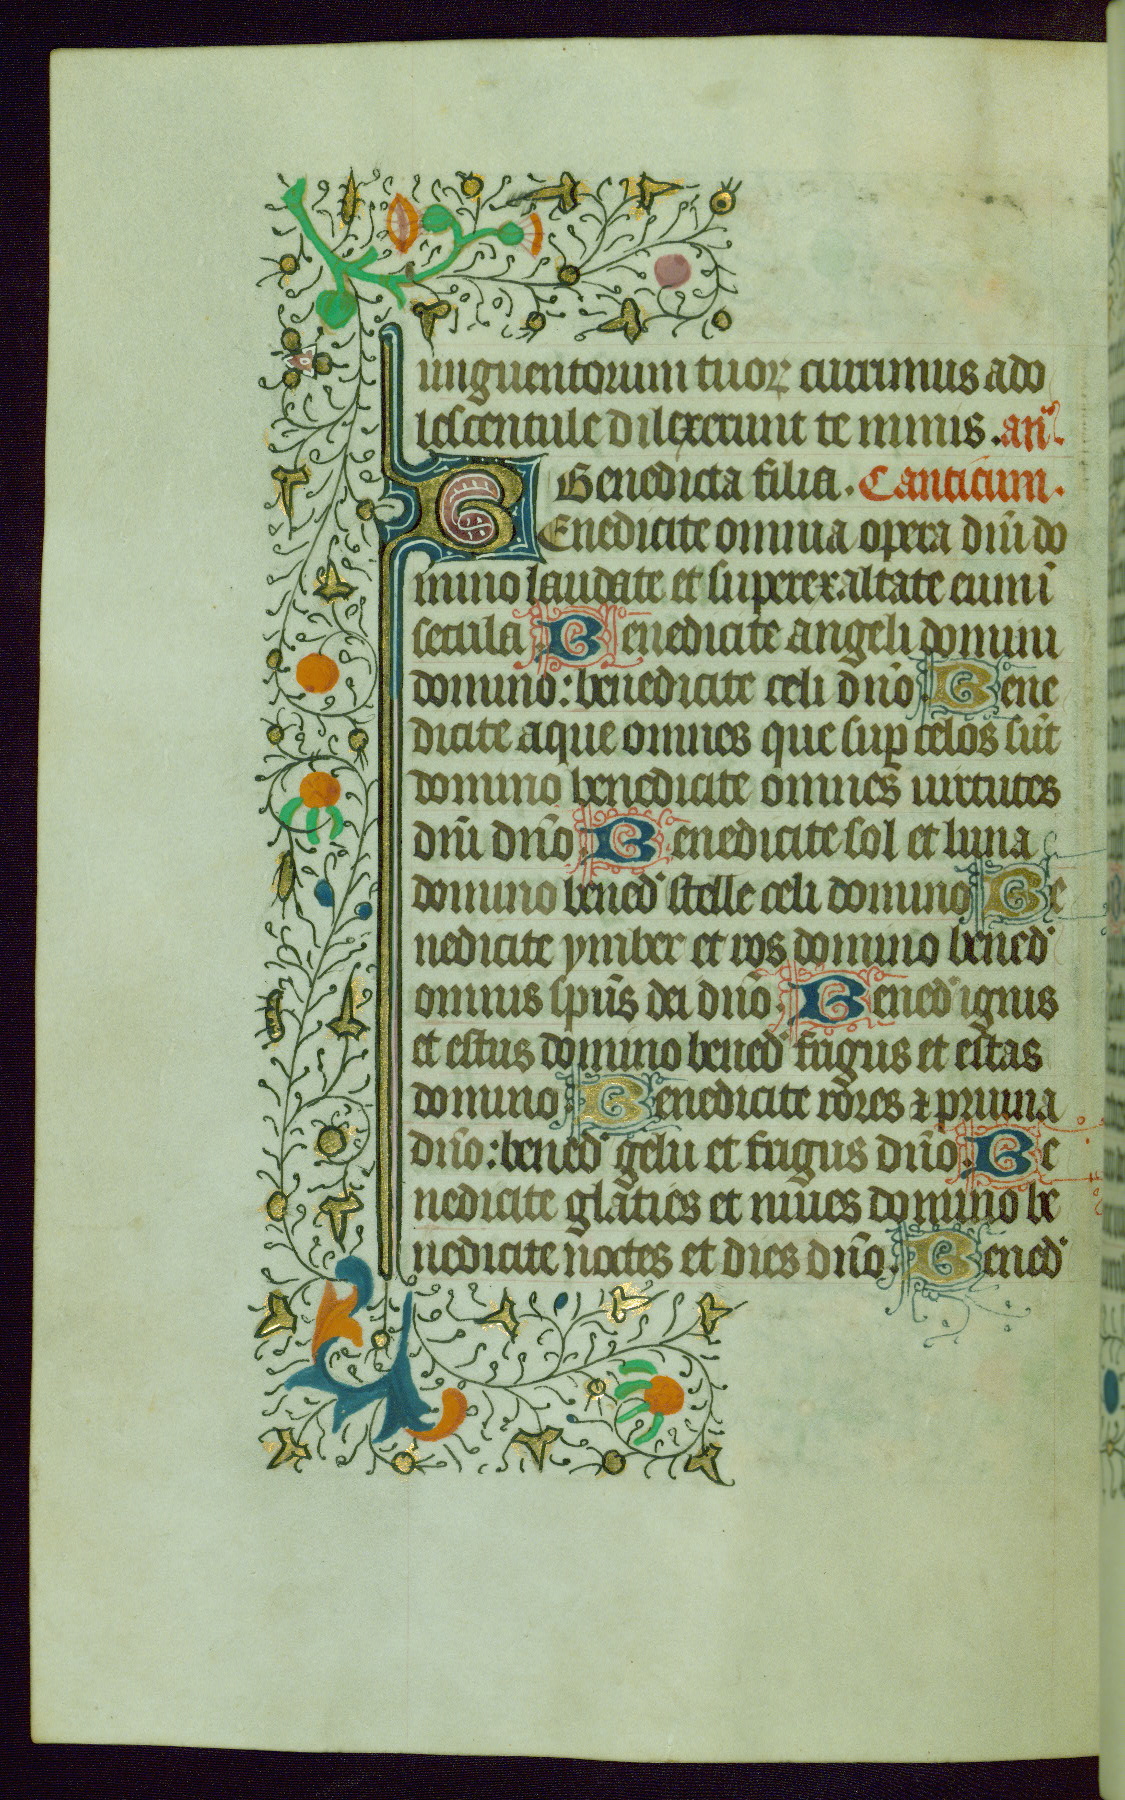 unguentorum tuoꝝ currimus ado
lescentule dilexerunt te nimis . an̄.
Benedicta filia. Canticum.
BEnedicite omnia opera dn̄i do
mino laudate et superexaltate eum ī
secula Benedicite angeli domini
domino: benedicite celi dn̄o. Bene
dicite aque omnes que sup celos sūt
domino benedicite omnes uirtutes
dn̄i dn̄o. Benedicite sol et luna
domino bened' stelle celi domino Be
nedicite ymber et ros domino bened'
omnis sp̄us dei dn̄o. Bened' ignis
et estus domino bened' frigus et estas
domino. Benedicite rores ⁊ pruina
dn̄o: bened' gelu et frigus dn̄o. Be
nedicite glaties et niues domino be
nedicite noctes et dies dn̄o. Bened'